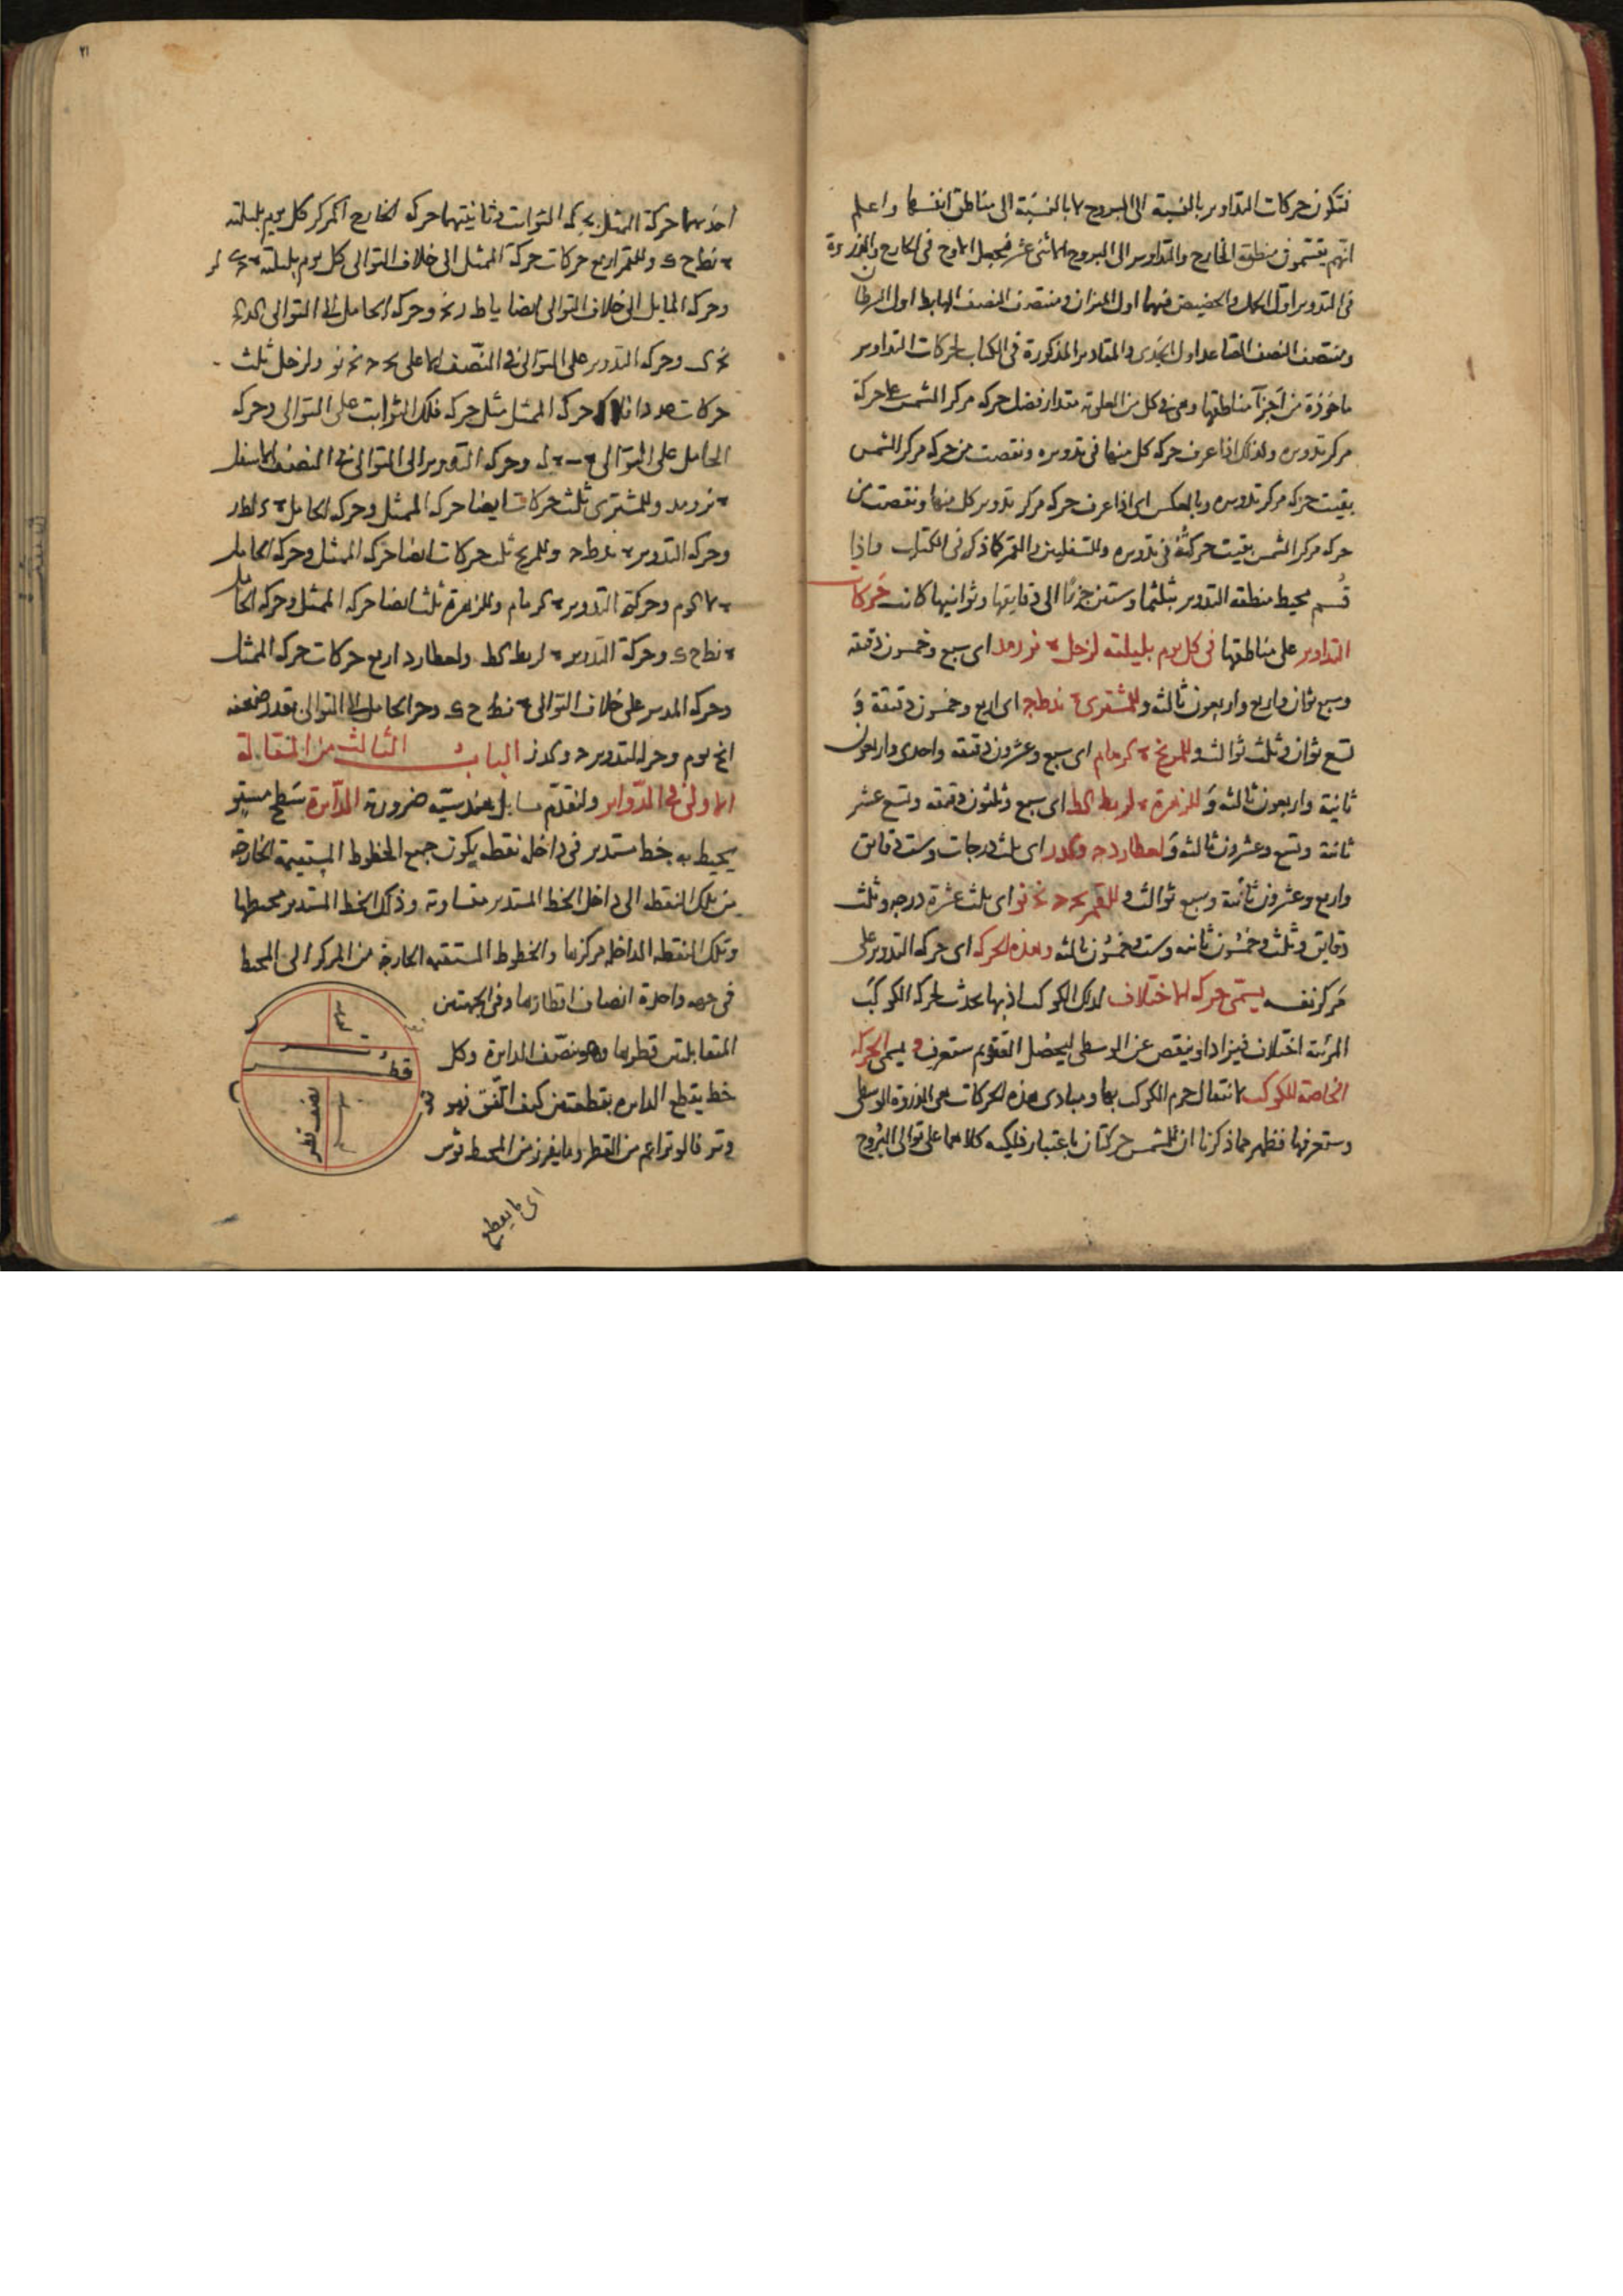 فتكون حركات التداوير بالنسبة الى البروج لا بالنسبة الى مناطق انفسها واعلم
انهم يقسمون منطقة الخارج والتداوير الى البروج الاثنى عشر فيجعل الاوج فى الخارج والذروة
فى التدوير اول الحمل والحضيض فيهما اول الميزان ومنتصف النصف الهابط اول السرطان
ومنتصف النصف الصاعد اول الجدى والمقادير المذكورة فى الكتاب لحركات التداوير
ماخوذة من اجزآ مناطقها وهى فى كل من العلوية مقدار فضل حركه مركز الشمس على حركة
مركز تدويره ولذلك اذا عرف حركه كل منها فى تدويره ونقصت من حركه مركز الشمس
بقيت حركه مركز تدويره وبالعكس اى اذا عرف حركه مركز تدوير كل منها ونقصت من
حركه مركز الشمس بقيت حركته فى تدويره وللسفليين والقمر كما ذكر فى الكتاب واذا
قسم محيط منطقه التدوير بثلثماوستين جزءًا الى دقايقها وثوانيها كانت حركات
التداوير على مناطقها فى كل يوم بليلته لزحل ٠ نز ز مد اى سبع وخمسون دقيقه
وسبع ثوان واربع واربعون ثالثه وللمشترى ٠ ند ط ج اى اربع وخمسون دقيقة و
تسع ثوان وثلث ثوالث وللمريخ ٠ كز ما م اى سبع وعشرون دقيقه واحدى واربعون
ثانية واربعون ثالثه وللزهرة ٠ لز يط كط اى سبع وثلثون دقيقه وتسع عشر
ثانية وتسع وعشرون ثالثه ولعطارد ج و كد ز اى ثلث درجات وست دقايق
واربع وعشرون ثانية وسبع ثوالث وللقمر يج ج نج نو اى ثلث عشرة درجه وثلث
دقايق وثلث وخمسون ثانيه وست وخمسون ثالثه وهذه الحركه اى حركه التدوير على
مركز نفسه يسمى حركه الاختلاف لذلك الكوكب اذ بها يحدث لحركه الكوكب
المرئية اختلاف فيزاد او ينقص عن الوسطى ليحصل التقويم ستعرف ويسمى الحركه
الخاصة للكوكب لانتقال جرم الكوكب بها ومبادى هذه الحركات هى الذروة الوسطى
وستعرفها فظهر مما ذكرنا ان للشمس حركتان باعتبار فلكيه كلاهما على توالى البروج
٢١
احديهما حركة الممثل بحركه الثوابت وثانيتهما حركه الخارج المركز كل يوم بليلته
٠ نط ح ك وللقمر اربع حركات حركة الممثل الى خلاف التوالى كل يوم بليلته
وحركه المايل الى خلاف التوالى ايضا يا ط ز نج وحركه الحامل الى التوالى كد
وحركه التدوير على التوالى فى النصف الاعلى يج ج نج نو ولزحل ثلث
حركات حركه الممثل مثل حركه فلك الثوابت على التوالى وحركه
الحامل على التوالى ٠ ب ٠ له وحركه التدوير الى التوالى فى النصف الاسفل
٠ نز ز مد وللمشترى ثلث حركات ايضا حركه الممثل وحركه الحامل
وحركه التدوير ٠ ند ط ج وللمريخ ثلث حركات ايضا حركه الممثل وحركه الحامل
وحركة التدوير ٠ كز ما م وللزهرة ثلث ايضا حركه الممثل وحركه الحامل
٠ نط ح ك وحركة التدوير ٠ لز يط كط ولعطارد اربع حركات حركه الممثل
وحركه المدير على خلاف التوالى ٠ نط ح ك وحركه الحامل الى التوالى بقدر ضعفه
وحركه التدوير ج و كد ز الباب الثالث من المقالة
الاولى فى الدواير ولنقدم مسايل هندسية ضرورة الدآيرة سطح مستو
يحيط به خط مستدير فى داخله نقطه يكون جميع الخطوط المستقيمة الخارجة
من تلك النقطه الى داخل الخط المستدير متساوية وذلك الخط المستدير محيطها
وتلك النقطه الداخله مركزها والخطوط المستقيمه الخارجه من المركز الى المحيط
فى جهه واحدة انصاف اقطارها وفى الجهتين
المتقابلتين قطرها وهو منصف الدايرة وكل
خط يقطع الدايره بقطعتين كيف اتفق فهو
وتر فالوتر اعم من القطر وما يفرز من المحيط قوس
قطر
نصف قطر
اى ما يقطع